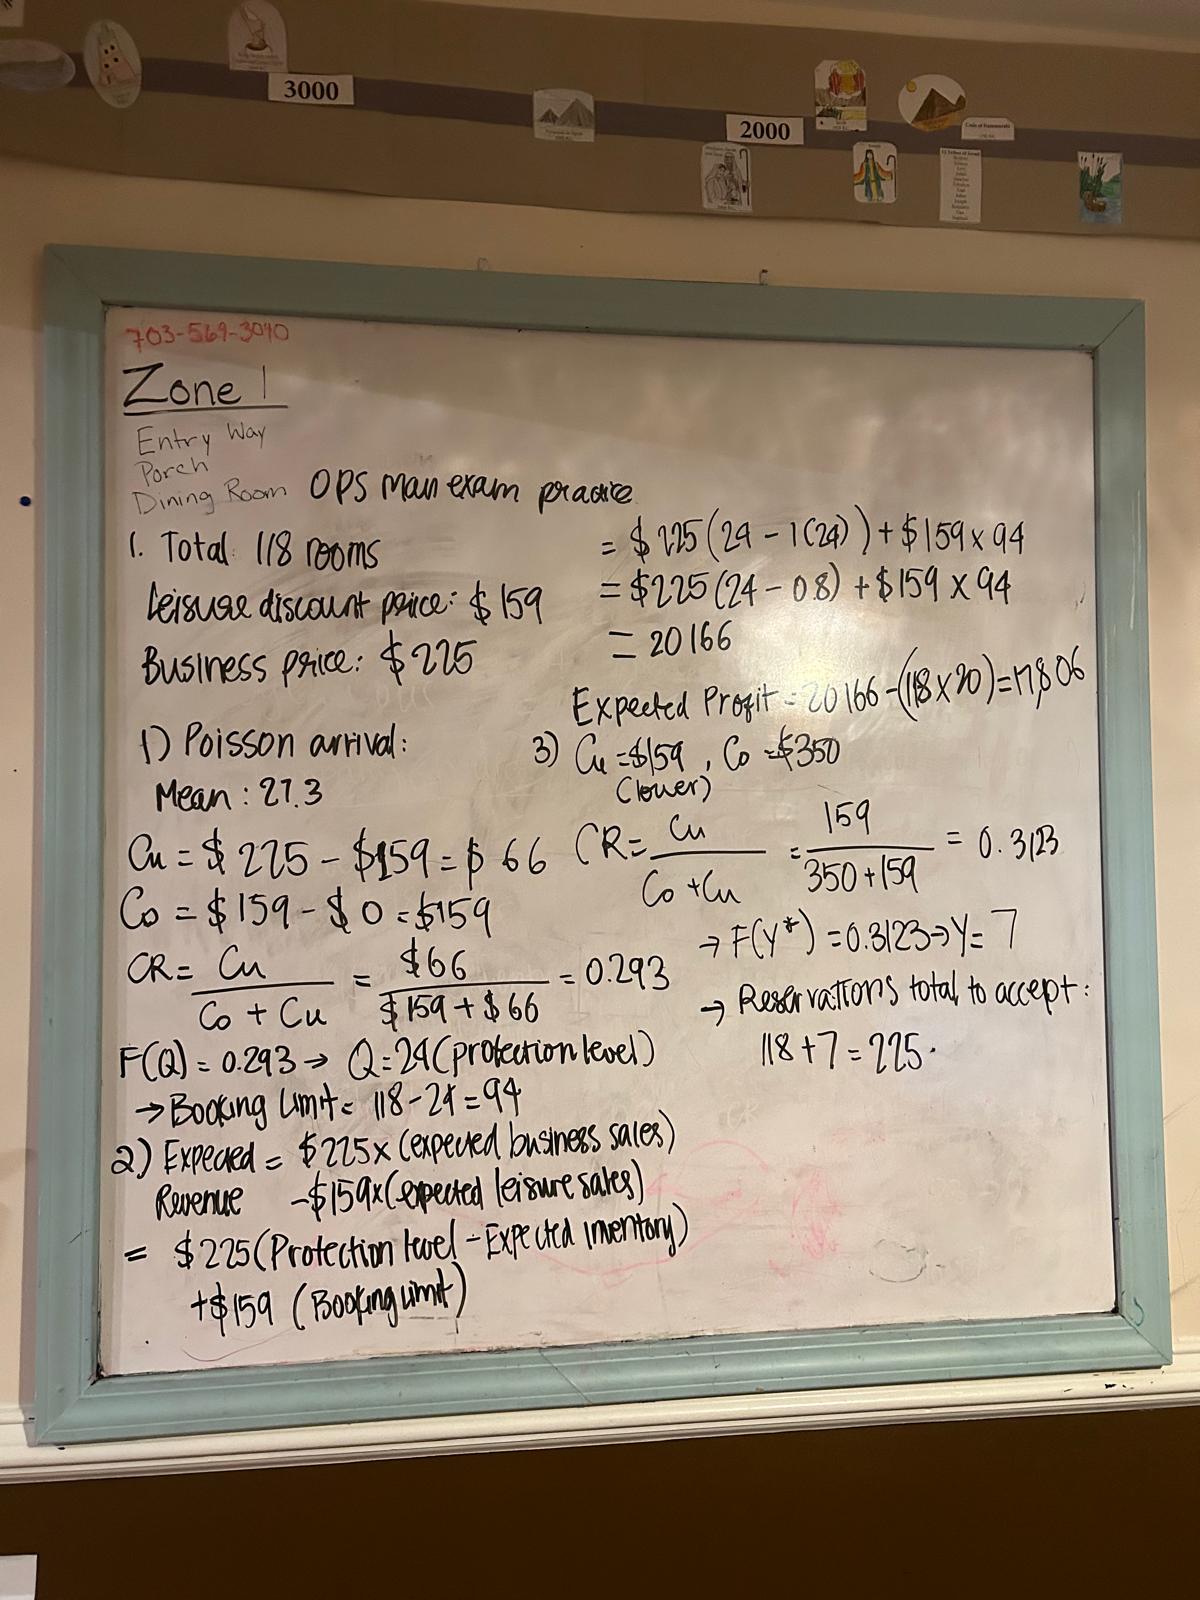 3000
2000
703-569-3040
Zone 1
Entry Way
Porch
Dining Room
OPS man exam practice
1. Total 118 rooms
Leisure discount price: $159
Business price: $225
1) Poisson arrival:
Mean: 27.3
Cu = $225 - $159 = $66
Co = $159 - $0 = $159
CR = Cu / Co + Cu = $66 / $159 + $66 = 0.293
F(Q) = 0.293 → Q = 24 (protection level)
→ Booking Limit = 118 - 24 = 94
2) Expected = $225 x (expected business sales)
Revenue - $159x(expected leisure sales)
= $225 (Protection level - Expected inventory)
+ $159 (Booking limit)
= $225 (24 - 1(24)) + $159 x 94
= $225 (24 - 0.8) + $159 x 94
= 20166
Expected Profit = 20166 - (118 x 20) = 17,806
3) Cu = $159, Co = $350
(lower)
CR = Cu / Co + Cu = 159 / 350 + 159 = 0.3123
→ F(Y*) = 0.3123 → Y = 7
→ Reservations total to accept:
118 + 7 = 225.